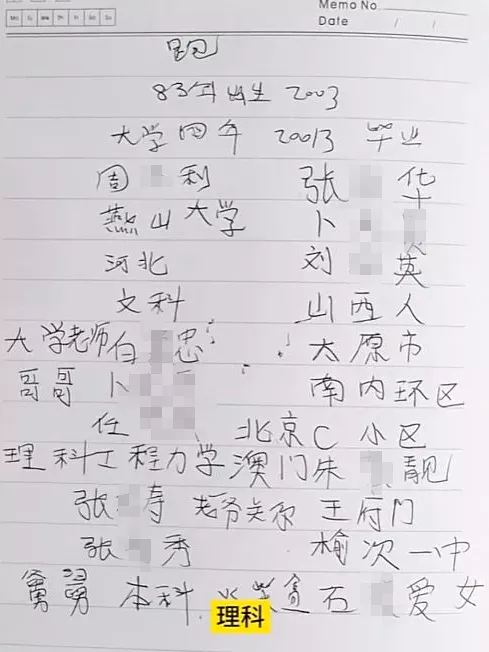 Memo No.
Date / /
跑
83年出生 2003
大学四年 20013 毕业
周 利 张 华
燕山大学 卜
河北 刘 英
文科 山西人
大学老师白 忠 太原市
哥哥 卜 南内环区
任 北京C小区
理科工程力学澳门朱 靓
张 寿 老爷关系 王府门
张 秀 榆次一中
舅舅 本科 石 爱女
理科